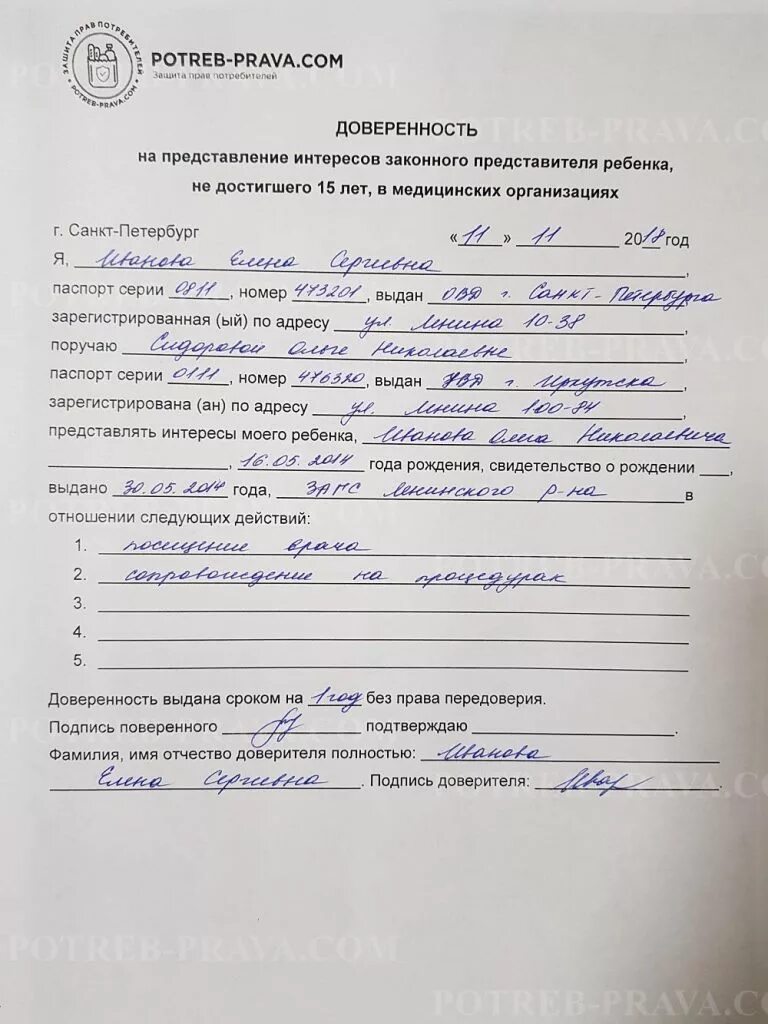 ЗАЩИТА ПРАВ ПОТРЕБИТЕЛЕЙ
POTREB-PRAVA.COM
POTREB-PRAVA.COM
Защита прав потребителей
ДОВЕРЕННОСТЬ
на представление интересов законного представителя ребенка,
не достигшего 15 лет, в медицинских организациях
г. Санкт-Петербург «11» 11 2018 год
Я, Иванова Елена Сергиевна,
паспорт серии 0811, номер 473201, выдан ОВД г. Санкт-Петербурга
зарегистрированная (ый) по адресу ул. Ленина 10-38,
поручаю Сидоровой Ольге Николаевне,
паспорт серии 0111, номер 476320, выдан УВД г. Иркутска,
зарегистрирована (ан) по адресу ул. Ленина 100-84,
представлять интересы моего ребенка, Иванова Олега Николаевича
, 16.05.2014 года рождения, свидетельство о рождении ,
выдано 30.05.2014 года, ЗАГС Ленинского р-на в
отношении следующих действий:
1. посищение врача
2. сопровождение на процедурах
3.
4.
5.
Доверенность выдана сроком на 1 год без права передоверия.
Подпись поверенного подтверждаю .
Фамилия, имя отчество доверителя полностью: Иванова
Елена Сергиевна. Подпись доверителя: .
POTREB-PRAVA.COM
POTREB-PRAVA.CO